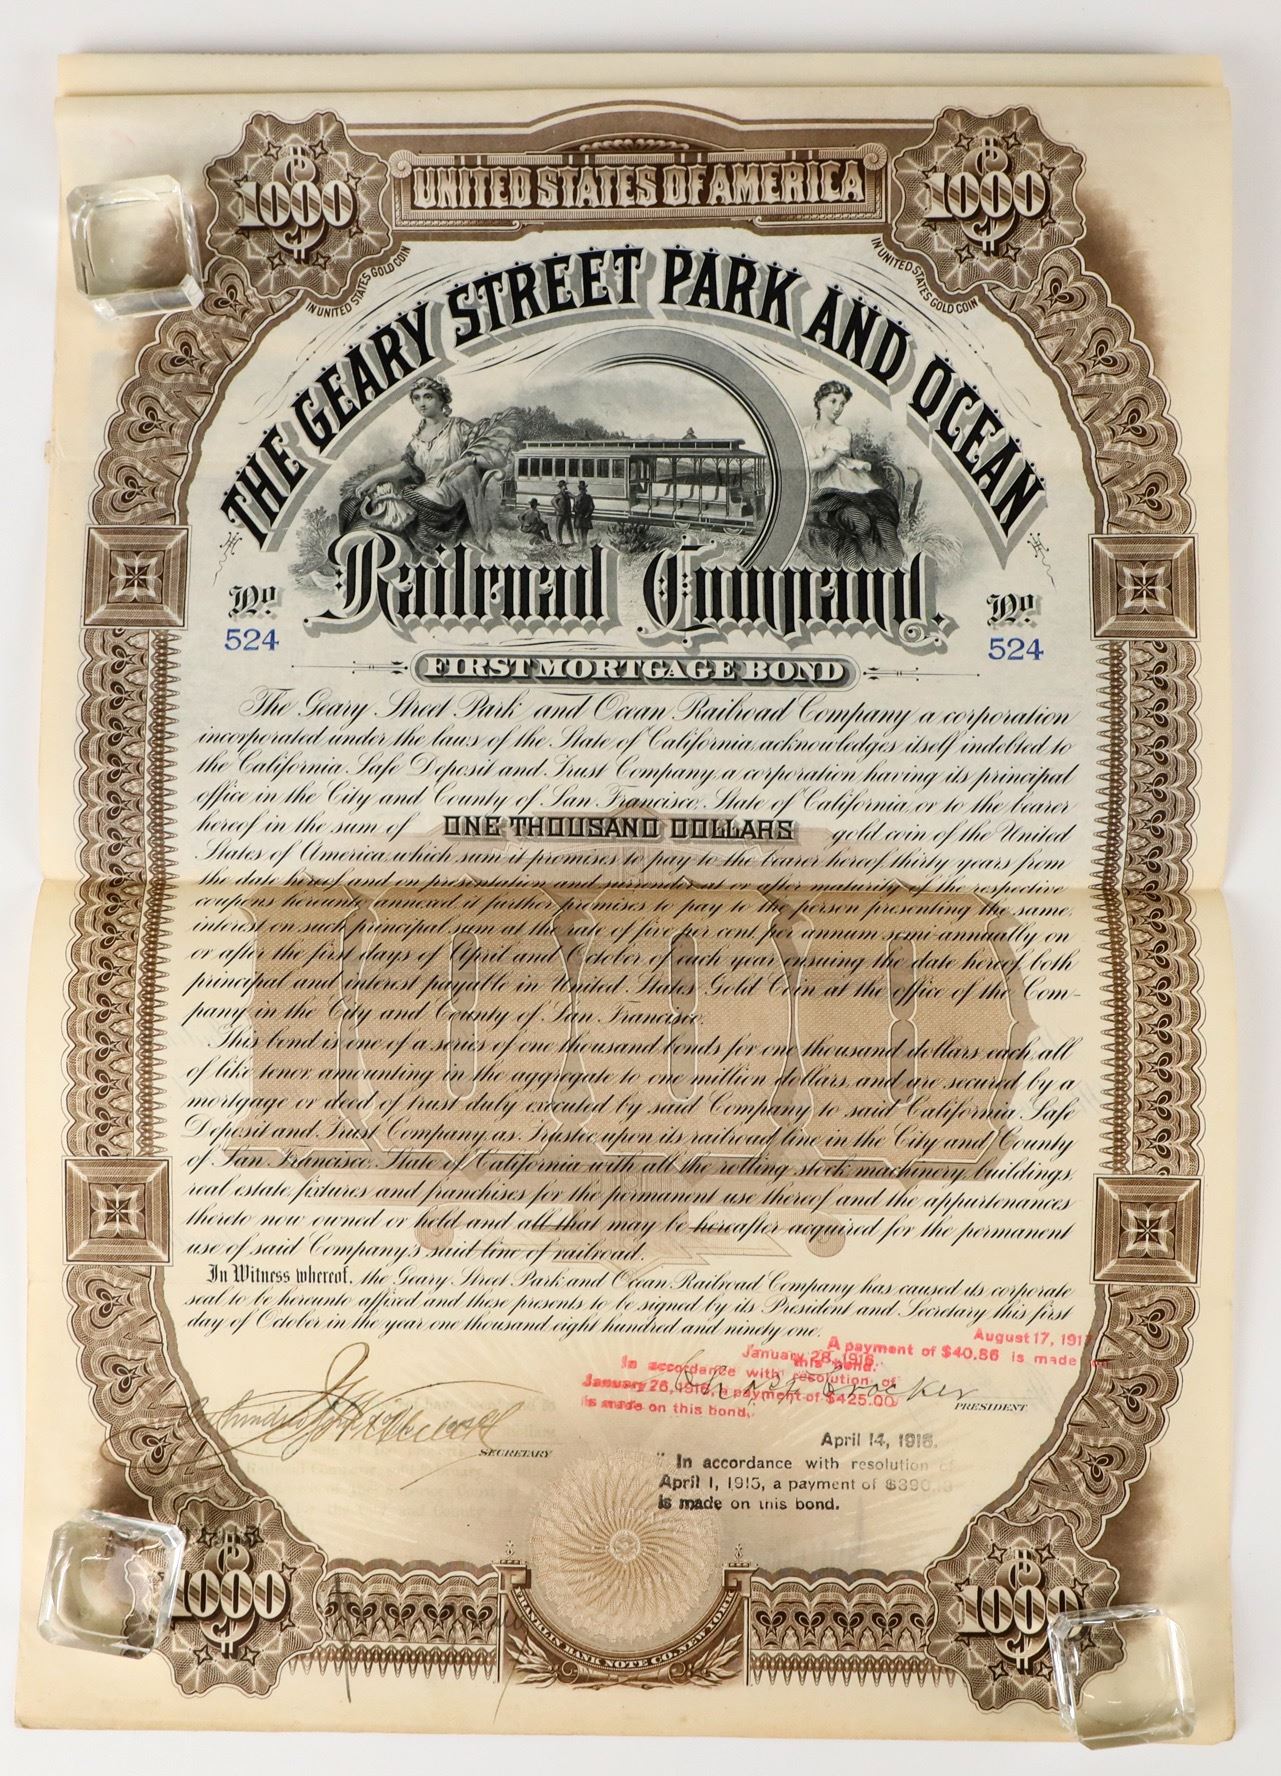 $ 1000
UNITED STATES OF AMERICA
$ 1000
IN UNITED STATES GOLD COIN
IN UNITED STATES GOLD COIN
THE GEARY STREET PARK AND OCEAN
Railroad Company.
No 524
No 524
FIRST MORTGAGE BOND
The Geary Street Park and Ocean Railroad Company a corporation
incorporated under the laws of the State of California, acknowledges itself indebted to
the California Safe Deposit and Trust Company, a corporation having its principal
office in the City and County of San Francisco, State of California, or to the bearer
hereof in the sum of ONE THOUSAND DOLLARS gold coin of the United
States of America, which sum it promises to pay to the bearer hereof, thirty years from
the date hereof and on presentation and surrender at or after maturity of the respective
coupons hereunto annexed, it further promises to pay to the person presenting the same,
interest on such principal sum at the rate of five per cent. per annum semi-annually on
or after the first days of April and October of each year ensuing the date hereof, both
principal and interest payable in United States Gold Coin at the office of the Com-
pany in the City and County of San Francisco.
This bond is one of a series of one thousand bonds for one thousand dollars each, all
of like tenor, amounting in the aggregate to one million dollars, and are secured by a
mortgage or deed of trust duly executed by said Company to said California Safe
Deposit and Trust Company, as Trustee, upon its railroad line in the City and County
of San Francisco, State of California with all the rolling stock, machinery, buildings,
real estate, fixtures and franchises for the permanent use thereof and the appurtenances
thereto now owned or held and all that may be hereafter acquired for the permanent
use of said Company's said line of railroad.
In Witness whereof, the Geary Street Park and Ocean Railroad Company has caused its corporate
seal to be hereunto affixed and these presents to be signed by its President and Secretary this first
day of October in the year one thousand eight hundred and ninety one.
August 17, 191
A payment of $40.86 is made on
this bond.
January 28, 1916.
In accordance with resolution of
January 26, 1916, a payment of $425.00
is made on this bond.
Crocker
PRESIDENT
SECRETARY
April 14, 1915.
"In accordance with resolution of
April 1, 1915, a payment of $390.
is made on this bond.
$ 1000
$ 1000
FRANKLIN BANK NOTE CO. NEW YORK
1000